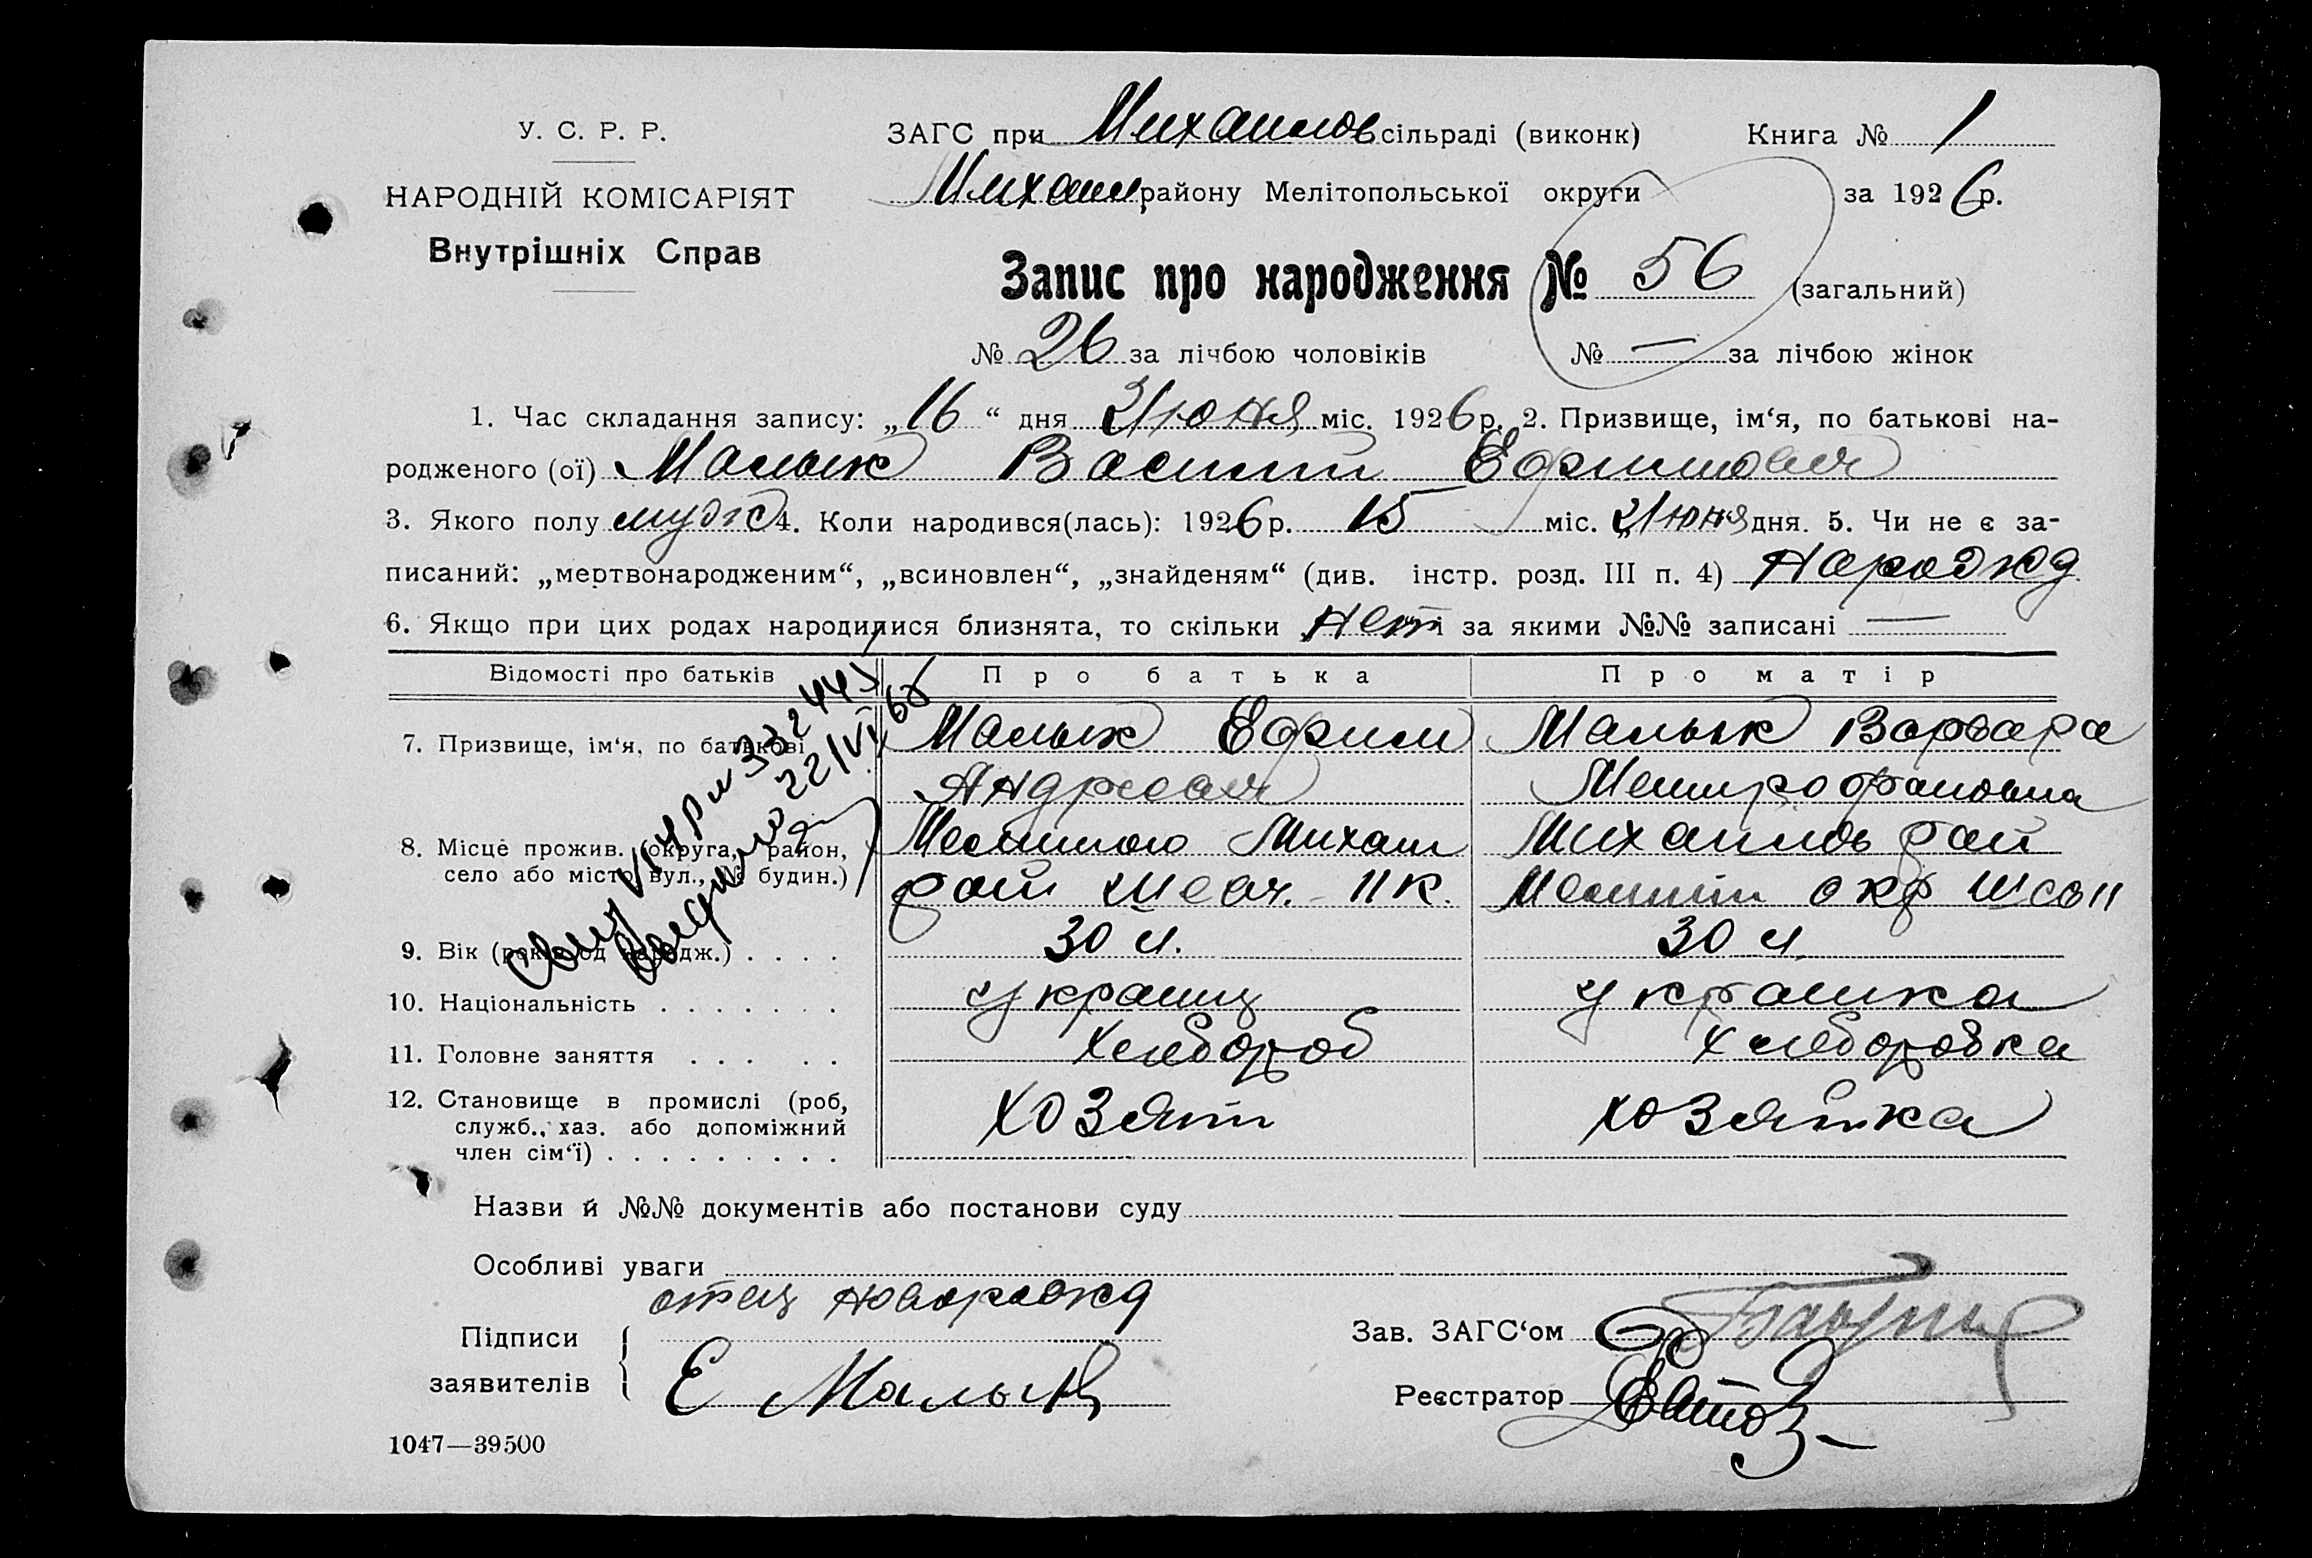 У. С. Р. Р.
НАРОДНІЙ КОМІСАРІЯТ
Внутрішніх Справ
ЗАГС при Михайлов сільраді (виконк) Книга № 1
Михайл району Мелітопольської округи за 1926 р.
Запис про народження № 56 (загальний)
№ 26 за лічбою чоловіків № — за лічбою жінок
1. Час складання запису: „16“ дня Июня міс. 1926 р. 2. Призвище, ім‘я, по батькові на-
родженого (ої) Малык Василий Ефимович
3. Якого полу муж 4. Коли народився(лась): 1926 р. 15 міс. Июня дня. 5. Чи не є за-
писаний: „мертвонародженим“, „всиновлен“, „знайденям“ (див. інстр. розд. III п. 4) Нарожд
6. Якщо при цих родах народилися близнята, то скільки нет і за якими №№ записані —
Відомості про батьків Про батька Про матір
7. Призвище, ім‘я, по батькові Малык Ефим Малык Варвара
Андреевич Митрофановна
8. Місце прожив. (округа, район, Михайл Михайлов рай
село або місто, вул., № будин.) рай окр
22/VI
9. Вік (років од народж.) . . . . 30 л. 30 л.
10. Національність . . . . . . . украинц украинка
11. Головне заняття . . . . . хлебороб хлеборобка
12. Становище в промислі (роб, хозяин хозяйка
служб., хаз. або допоміжний
член сім‘ї) . . . . . . . . .
Назви й №№ документів або постанови суду
Особливі уваги
отец новорожд
Підписи
заявителів
Е Малык
Зав. ЗАГС‘ом
Реєстратор
1047—39500